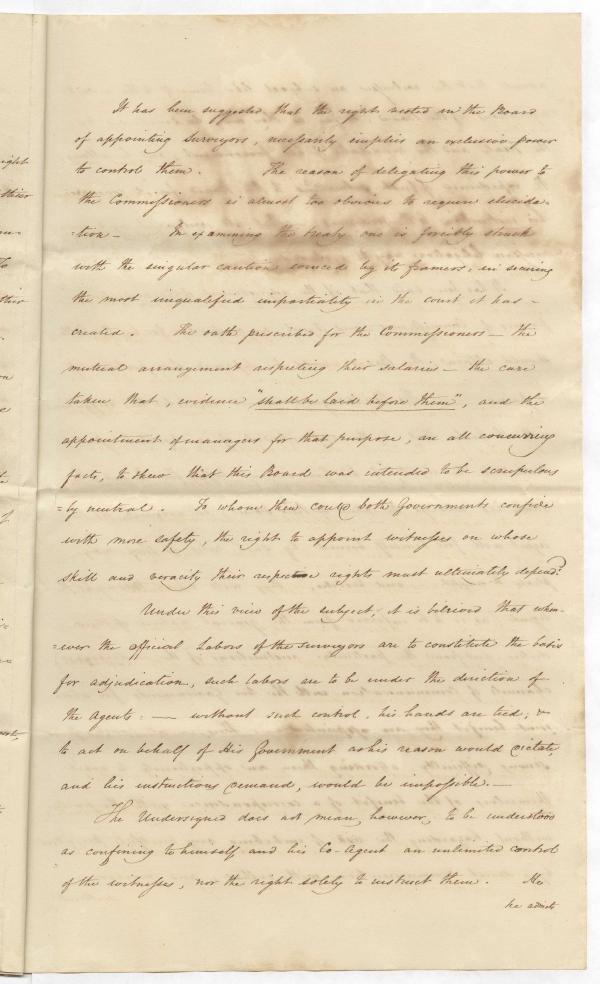 It has been suggested that the right vested in the Board
of appointing Surveyors, necessarily implies an exclusive power
to control them. The reason of delegating this power to
the Commissioners is almost too obvious to require elucida-
=tion - In examining the treaty one is forcibly struck
with the singular caution evinced by it framers, in securing
the most inqualified impartiality in the court it has -
created. The oath prescribed for the Commissioners — the
mutual arrangement respecting their salaries — the care
taken that, evidence "shall be laid before them", and the
appointment of managers for that purpose, are all concurring
facts, to shew that this Board was intended to be scrupulous
=ly neutral. To whom then could both Governments confide
with more safety, the right to appoint witnesses on whose
skill and veracity their respective rights must ultimately depend?
Under this view of the subject, it is believed that when-
=ever the official Labors of the surveyors are to constitute the basis
for adjudication, such labors are to be under the direction of
the Agents: — without such control, his hands are tied; &
to act on behalf of His Government as his reason would dictate,
and his instructions demand, would be impossible. —
The Undersigned does not mean, however, to be understood
as confining to himself and his Co-Agent an unlimited control
of the witnesses, nor the right solely to instruct them.
he admits
ight
To
on
of